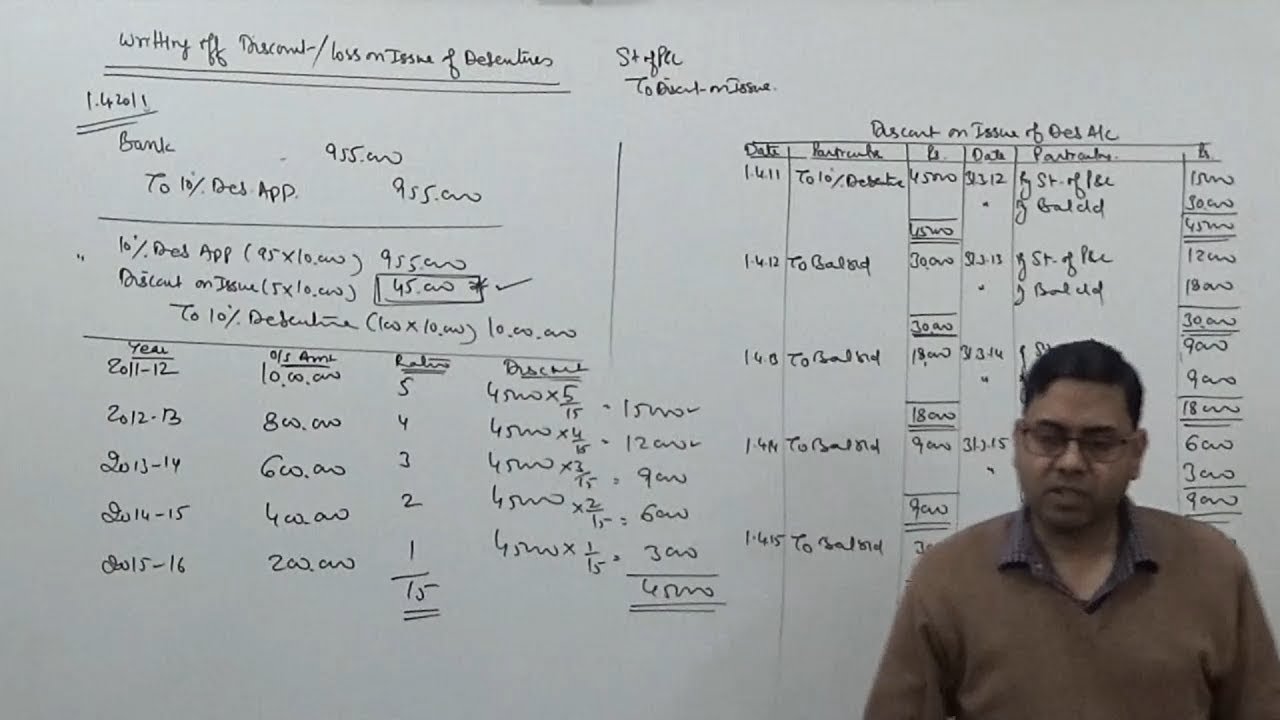 Writing off Discount/Loss on Issue of Debentures
St of P&L
To Discount on Issue.
1.4.2011
Bank 955.000
To 10% Deb. APP. 955.000
" 10% Deb APP (95x10.000) 955.000
Discount on Issue (5x10.000) 45.000
To 10% Debenture (100x10.000) 10.00.000
Year O/S Amt Ratio Discount
2011-12 10.00.000 5 45000 x 5/15 = 15000
2012-13 800.000 4 45000 x 4/15 = 12000
2013-14 600.000 3 45000 x 3/15 = 9000
2014-15 400.000 2 45000 x 2/15 = 6000
2015-16 200.000 1 45000 x 1/15 = 3000
15 45000
Discount on Issue of Deb A/c
Date Particulars Rs. Date Particulars. Rs.
1.4.11 To 10% Debenture 45000 31.3.12 By St. of P&L 15000
" By Bal c/d 30.000
45000 45000
1.4.12 To Bal b/d 30.000 31.3.13 By St. of P&L 12000
" By Bal c/d 18000
30.000 30.000
1.4.13 To Bal b/d 18000 31.3.14 By St 9000
" 9000
18000 18000
1.4.14 To Bal b/d 9000 31.3.15 6000
" 3000
9000 9000
1.4.15 To Bal b/d